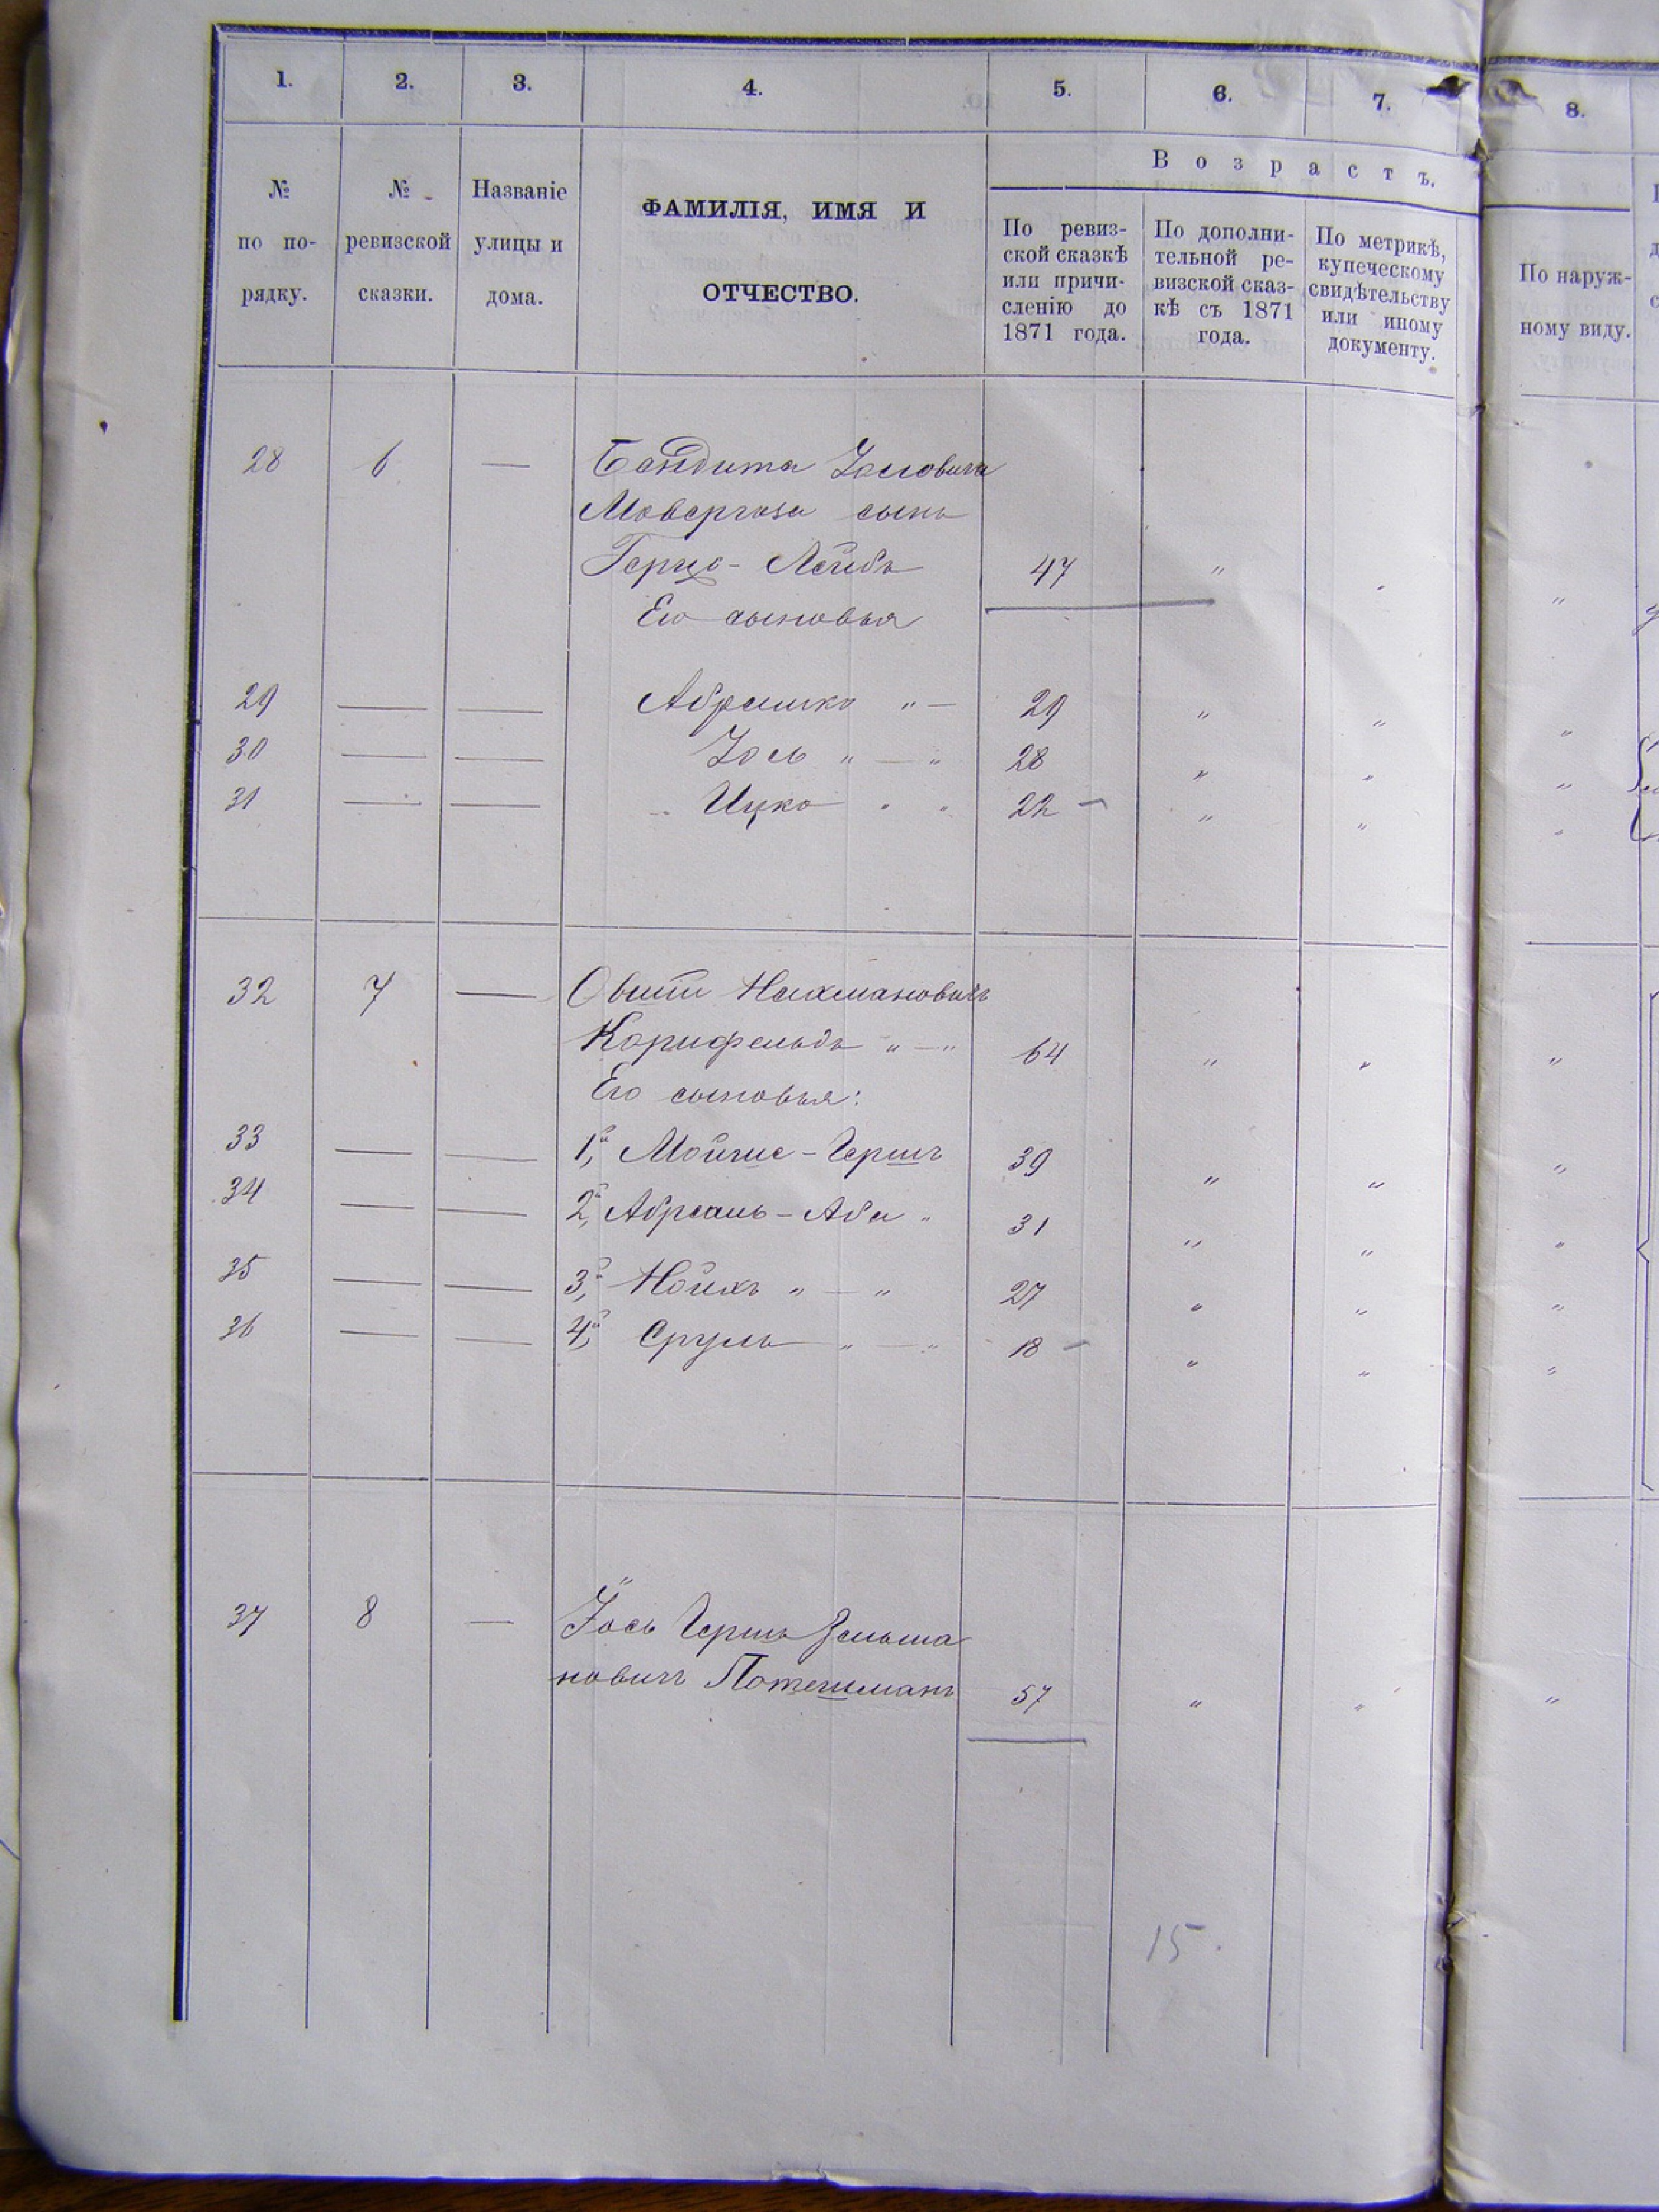 1. 2. 3. 4. 5. 6. 7. 8.
В о з р а с т ъ.
№ по по-рядку.
№ ревизской сказки.
Названіе улицы и дома.
ФАМИЛІЯ, ИМЯ И
ОТЧЕСТВО.
По ревиз-
ской сказкѣ
или причи-
сленію до
1871 года.
По дополни-
тельной ре-
визской сказ-
кѣ съ 1871
года.
По метрикѣ,
купеческому
свидѣтельству
или иному
документу.
По наруж-
ному виду.
28 6 —
сынъ
Герцо-Лейба 47 " " "
Его сыновья
29 — — Абрамко " — 29 " " "
30 — — Іось " — " 28 " " "
31 — — Ицко " " 22 — " " "
32 7 — Овшій Нахмановичъ
Корнфельдъ " — " 64 " " "
Его сыновья:
33 — — 1й, Мойше-Гершъ 39 " " "
34 — — 2й, Абрамъ-Аба " 31 " " "
35 — — 3й, Нойхъ " — " 27 " " "
36 — — 4й, Сруль " — " 18 — " " "
37 8 — Іось Гершъ Зельма
новичъ Потешманъ 57 " " "
15.